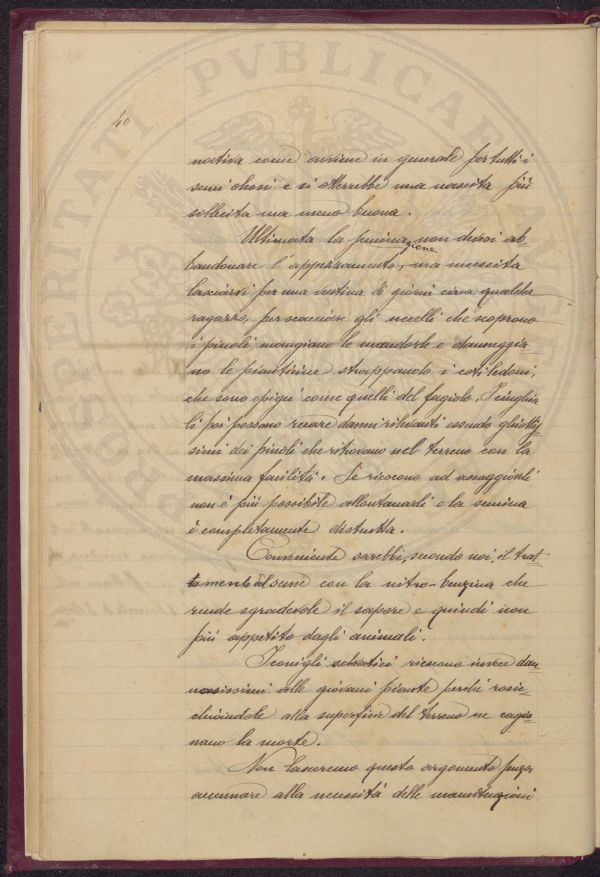 40
nativa come avviene in generale per tutti i
semi oleosi e si otterrebbe una nascita più
sollecita ma meno buona.
Ultimata la seminagione non devesi ab-
bandonare l'appezzamento, ma necessita
lasciarvi per una ventina di giorni circa qualche
ragazzo, per scacciare gli uccelli che scoprono
i pinoli mangiano le mandorle e danneggia
no le piantinine strappando i cotiledoni,
che sono epigei come quelli del fagiolo. I cinghia
li poi possono recare danni rilevanti essendo ghiottis
simi dei pinoli che ritrovano nel terreno con la
massima facilità. Se riescono ad assaggiarli
non è più possibile allontanarli e la semina
è completamente distrutta.
Conveniente sarebbe, secondo noi, il trat-
tamento del seme con la nitro-benzina che
rende sgradevole il sapore e quindi non
più appetito dagli animali.
I conigli selvatici riescono invece dan-
nosissimi alle giovani piante perchè rosic-
chiandole alla superficie del terreno ne cagio-
nano la morte.
Non lasceremo questo argomento senza
accennare alla necessità delle manutenzioni
PROSPERITATI PVBLICAE